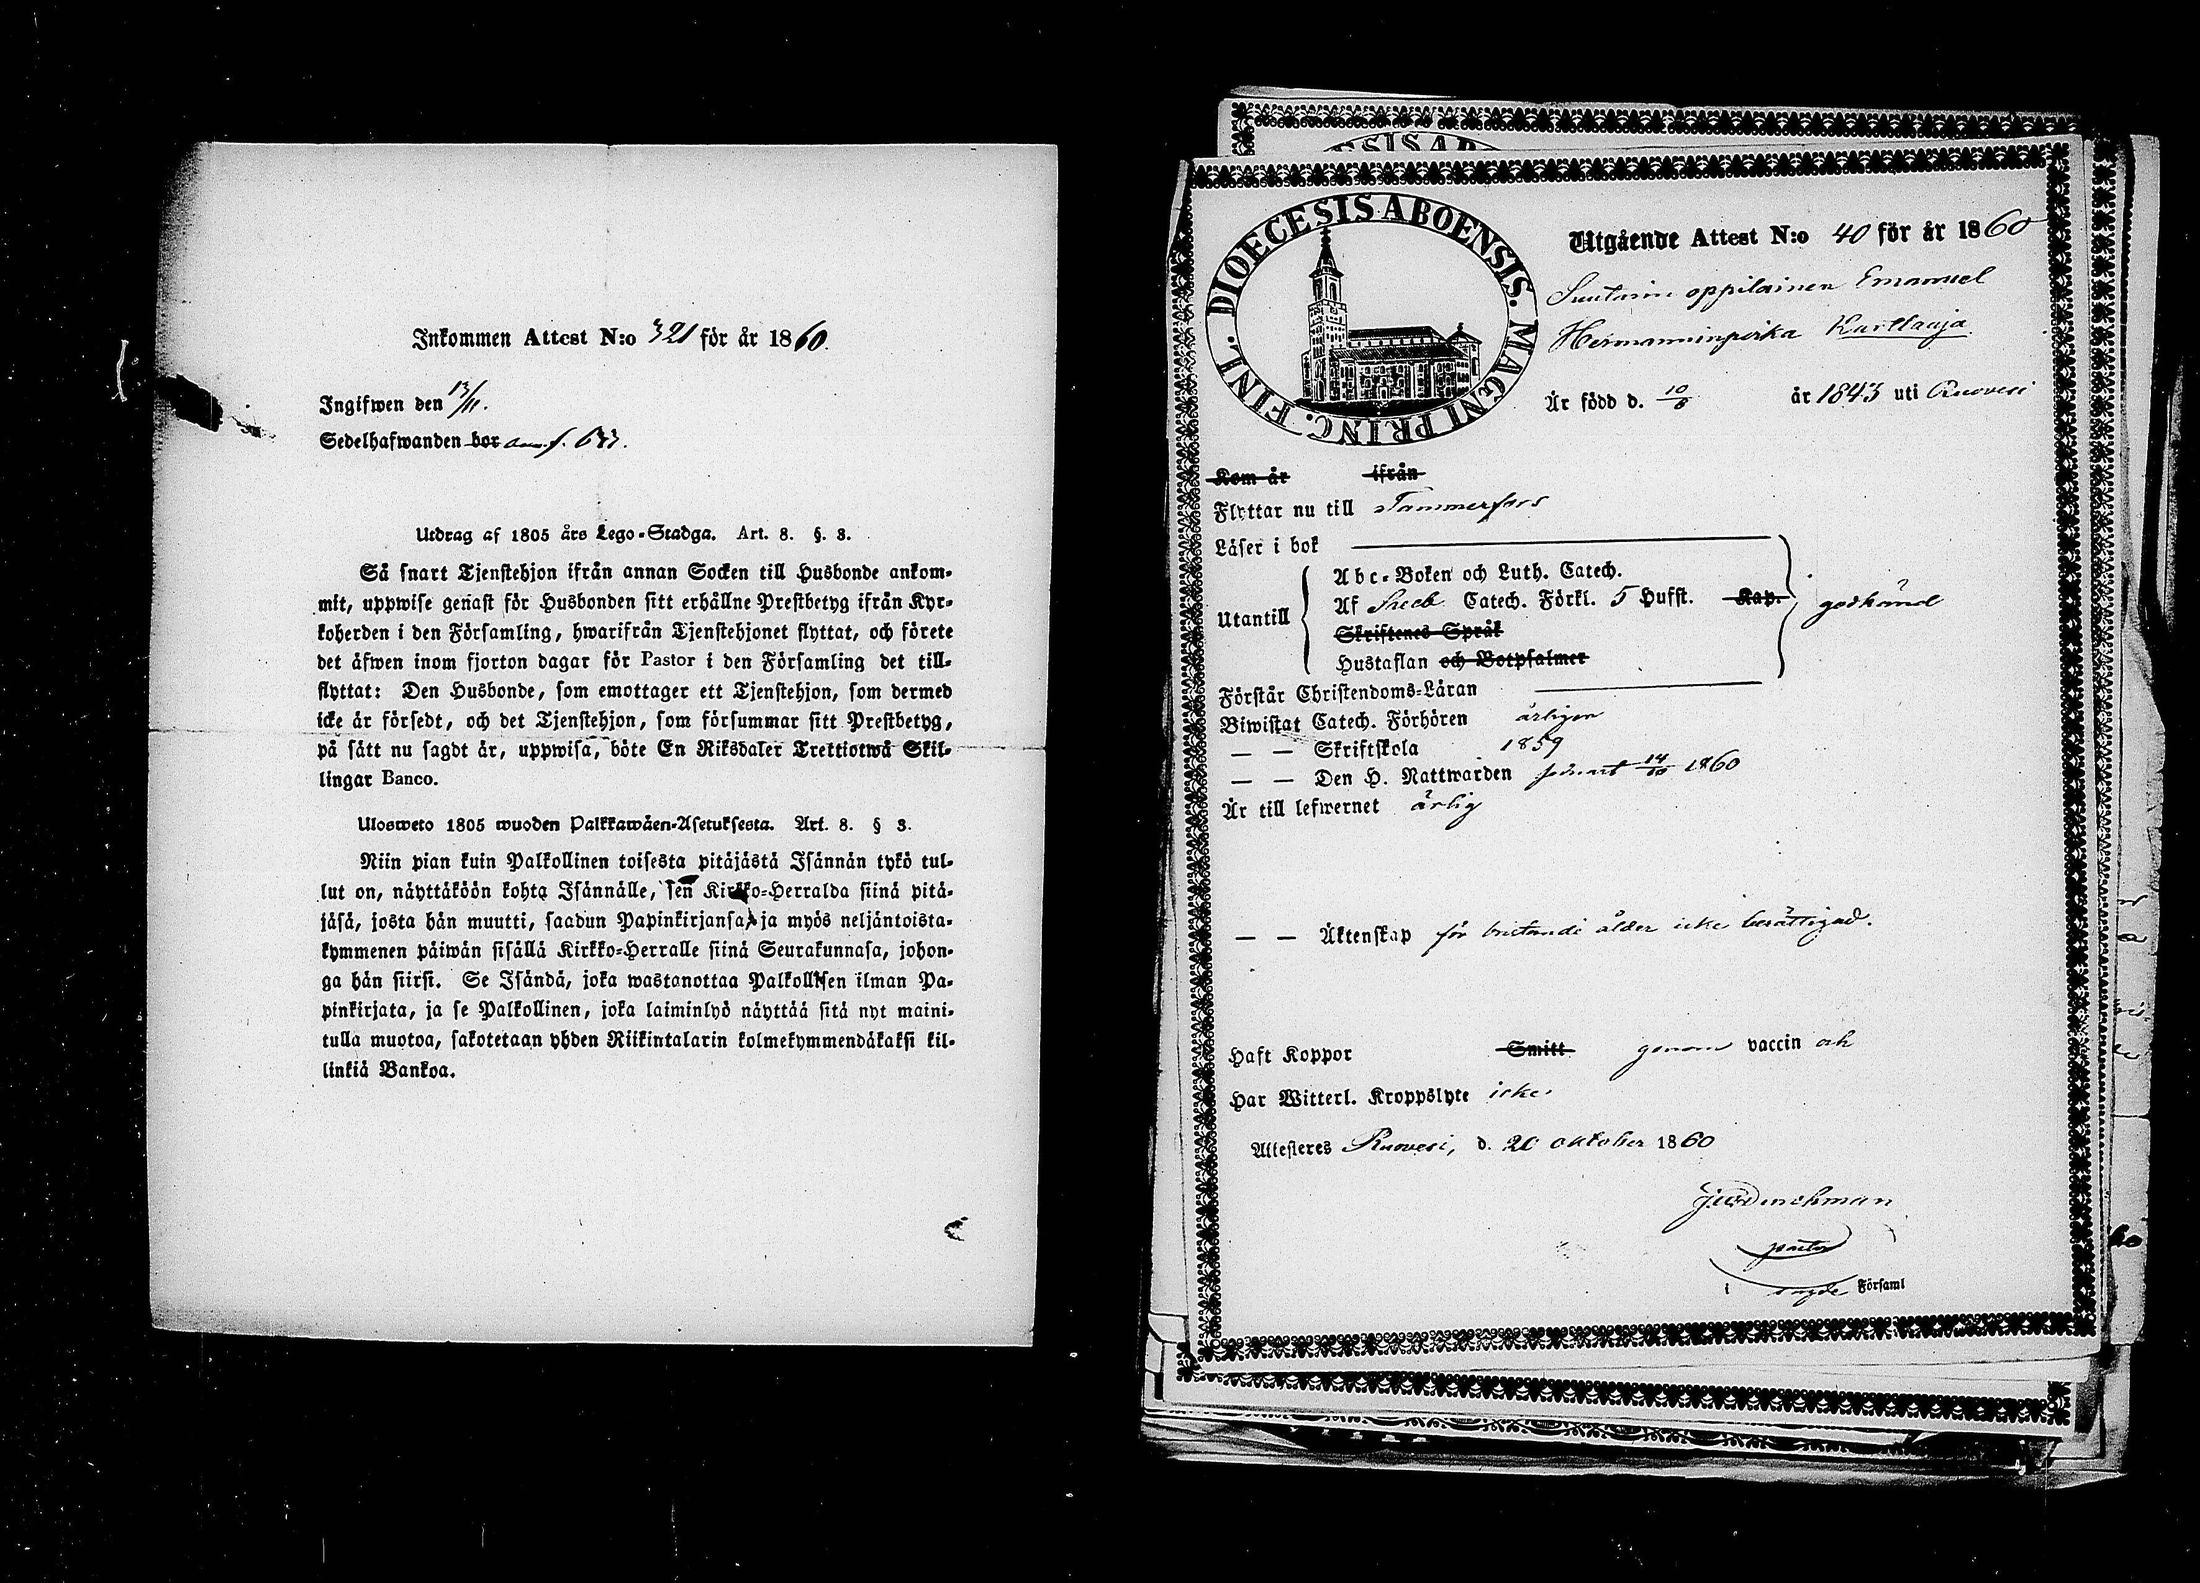 Inkommen Attest N:o 321 för år 1860.
Ingifwen den 13/11.
Sedelhafwanden bor
Utdrag af 1805 års Lego-Stadga. Art. 8. §. 3.
Så snart Tjenstehjon ifrån annan Socken till Husbonde ankom-
mit, uppwise genast för Husbonden sitt erhållne Prestbetyg ifrån Kyr-
koherden i den Församling, hwarifrån Tjenstehjonet flyttat, och förete
det äfwen inom fjorton dagar för Pastor i den Församling det till-
flyttat: Den Husbonde, som emottager ett Tjenstehjon, som dermed
icke är försedt, och det Tjenstehjon, som försummar sitt Prestbetyg,
på sätt nu sagdt är, uppwisa, böte En Riksdaler Trettiotwå Skil-
lingar Banco.
Ulosweto 1805 wuoden Palkkawäen-Asetuksesta. Art. 8. § 3.
Niin pian kuin Palkollinen toisesta pitäjästä Isännän tykö tul-
lut on, näyttäköön kohta Isännälle, sen Kirkko-Herralda siinä pitä-
jäsä, josta hän muutti, saadun Papinkirjansa, ja myös neljäntoista-
kymmenen päiwän sisällä Kirkko-Herralle siinä Seurakunnasa, johon-
ga hän siirsi. Se Isändä, joka wastanottaa Palkollisen ilman Pa-
pinkirjata, ja se Palkollinen, joka laiminlyö näyttää sitä nyt maini-
tulla muotoa, sakotetaan yhden Riikintalarin kolmekymmendäkaksi kil-
linkiä Bankoa.
DIOECESIS ABOENSIS. MAGNI PRINC. FINL.
Utgående Attest N:o 40 för år 1860
Suutarin oppilainen Emanuel
Hermanninpoika Kurttauja
Är född d. 10/8 år 1843 uti Ruovesi
Kom år ifrån
Flyttar nu till Tammerfors
Läser i bok
Abc-Boken och Luth. Catech.
Utantill
Af Sveb. Catech. Förkl. 5 Hufst. Kap. godkänd
Skriftenes Språk
Hustaflan och Botpsalmer
Förstår Christendoms-Läran
Biwistat Catech. Förhören årligen
— — Skriftskola 1859
— — Den H. Nattwarden senast 14/10 1860
Är till lefwernet ärlig
— — Äktenskap för bristande ålder icke berättigad.
Haft Koppor Smitt genom vaccin och
Har Witterl. Kroppslyte icke.
Attesteres Ruovesi, d. 20 oktober 1860
pastor
i sagde Församl